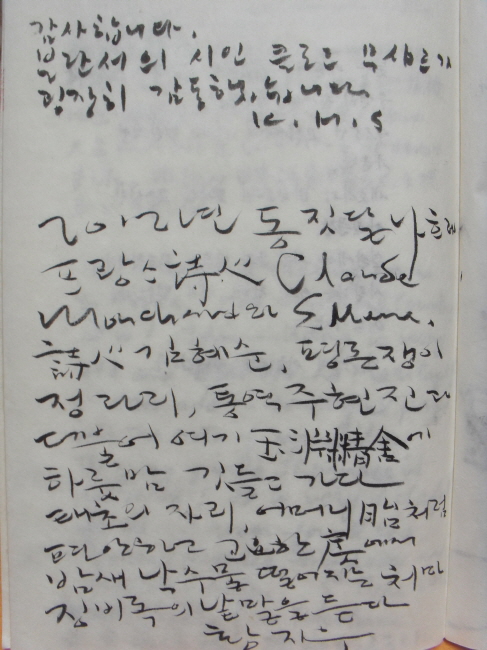 감사합니다.
불란서의 시인 클로드 무샤르가
굉장히 감동했습니다.
K. H. S
2012년 동짓달 나흘에
프랑스 詩人 Claude
Mouchard와
詩人 김혜순, 평론쟁이
정과리, 통역 주현진과
더불어 여기 玉淵精舍에
하룻밤 깃들고 간다
태초의 자리, 어머니 胎처럼
편안하고 고요한 房에서
밤새 낙수물 떨어지는 처마
징비록의 날말을 듣다
황지우